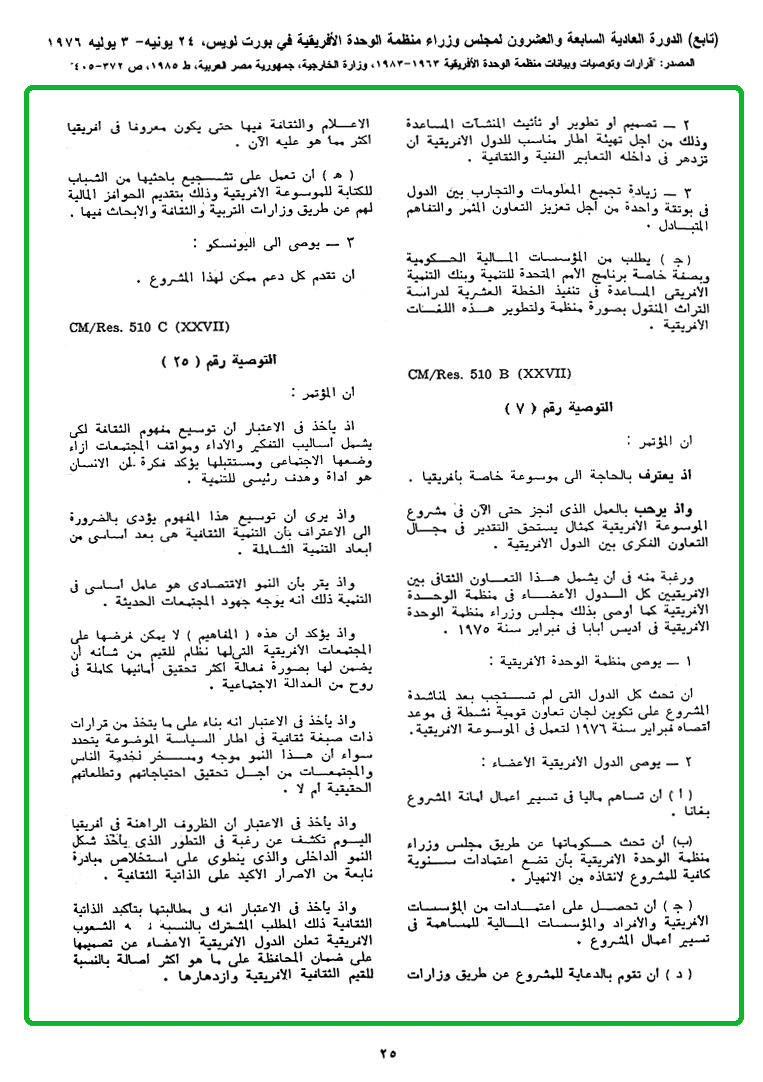 (تابع) الدورة العادية السابعة والعشرون لمجلس وزراء منظمة الوحدة الأفريقية في بورت لويس، ٢٤ يونيه- ٣ يوليه ١٩٧٦
المصدر: "قرارات وتوصيات وبيانات منظمة الوحدة الأفريقية ١٩٦٣-١٩٨٣، وزارة الخارجية، جمهورية مصر العربية، ط ١٩٨٥، ص ٣٧٢-٤٠٥"
٢ — تصميم أو تطوير أو تأثيث المنشآت المساعدة
وذلك من أجل تهيئة اطار مناسب للدول الأفريقية أن
تزدهر فى داخله التعابير الفنية والثقافية .
٣ — زيادة تجميع المعلومات والتجارب بين الدول
فى بوتقة واحدة من أجل تعزيز التعاون المثمر والتفاهم
المتبادل .
( جـ ) يطلب من المؤسسات المالية الحكومية
وبصفة خاصة برنامج الأمم المتحدة للتنمية وبنك التنمية
الأفريقى المساعدة فى تنفيذ الخطة العشرية لدراسة
التراث المنقول بصورة منظمة ولتطوير هذه اللغات
الأفريقية .
CM/Res. 510 B (XXVII)
التوصية رقم ( ٧ )
ان المؤتمر :
اذ يعترف بالحاجة الى موسوعة خاصة بأفريقيا .
واذ يرحب بالعمل الذى انجز حتى الآن فى مشروع
الموسوعة الأفريقية كمثال يستحق التقدير فى مجال
التعاون الفكرى بين الدول الأفريقية .
ورغبة منه فى أن يشمل هذا التعاون الثقافى بين
الافريقيين كل الدول الأعضاء فى منظمة الوحدة
الأفريقية كما أوصى بذلك مجلس وزراء منظمة الوحدة
الأفريقية فى أديس أبابا فى فبراير سنة ١٩٧٥ .
١ — يوصى منظمة الوحدة الأفريقية :
أن تحث كل الدول التى لم تستجب بعد لمناشدة
المشروع على تكوين لجان تعاون قومية نشطة فى موعد
أقصاه فبراير سنة ١٩٧٦ لتعمل فى الموسوعة الافريقية.
٢ — يوصى الدول الأفريقية الأعضاء :
( أ ) أن تساهم ماليا فى تسيير أعمال أمانة المشروع
بغانا .
(ب) أن تحث حكوماتها عن طريق مجلس وزراء
منظمة الوحدة الأفريقية بأن تضع اعتمادات سنوية
كافية للمشروع لانقاذه من الانهيار .
( جـ ) أن تحصل على اعتمادات من المؤسسات
الأفريقية والأفراد والمؤسسات المالية للمساهمة فى
تسيير أعمال المشروع .
( د ) أن تقوم بالدعاية للمشروع عن طريق وزارات
الاعلام والثقافة فيها حتى يكون معروفا فى أفريقيا
أكثر مما هو عليه الآن .
( هـ ) أن تعمل على تشجيع باحثيها من الشباب
للكتابة للموسوعة الأفريقية وذلك بتقديم الحوافز المالية
لهم عن طريق وزارات التربية والثقافة والابحاث فيها .
٣ — يوصى الى اليونسكو :
أن تقدم كل دعم ممكن لهذا المشروع .
CM/Res. 510 C (XXVII)
التوصية رقم ( ٢٥ )
ان المؤتمر :
اذ يأخذ فى الاعتبار أن توسيع مفهوم الثقافة لكى
يشمل أساليب التفكير والأداء ومواقف المجتمعات ازاء
وضعها الاجتماعى ومستقبلها يؤكد فكرة أن الانسان
هو أداة وهدف رئيسى للتنمية .
واذ يرى أن توسيع هذا المفهوم يؤدى بالضرورة
الى الاعتراف بأن التنمية الثقافية هى بعد أساسى من
أبعاد التنمية الشاملة .
واذ يقر بأن النمو الاقتصادى هو عامل أساسى فى
التنمية ذلك أنه يوجه جهود المجتمعات الحديثة .
واذ يؤكد أن هذه ( المفاهيم ) لا يمكن فرضها على
المجتمعات الأفريقية التى لها نظام للقيم من شأنه أن
يضمن لها بصورة فعالة أكثر تحقيق أمانيها كاملة فى
روح من العدالة الاجتماعية .
واذ يأخذ فى الاعتبار أنه بناء على ما يتخذ من قرارات
ذات صبغة ثقافية فى اطار السياسة الموضوعة يتحدد
سواء أن هذا النمو موجه ومسخر لخدمة الناس
والمجتمعات من أجل تحقيق احتياجاتهم وتطلعاتهم
الحقيقية أم لا .
واذ يأخذ فى الاعتبار أن الظروف الراهنة فى أفريقيا
اليوم تكشف عن رغبة فى التطور الذى يأخذ شكل
النمو الداخلى والذى ينطوى على استخلاص مبادرة
نابعة من الاصرار الأكيد على الذاتية الثقافية .
واذ يأخذ فى الاعتبار أنه فى مطالبتها بتأكيد الذاتية
الثقافية ذلك المطلب المشترك بالنسبة الشعوب
الافريقية تعلن الدول الأفريقية الأعضاء عن تصميمها
على ضمان المحافظة على ما هو أكثر أصالة بالنسبة
للقيم الثقافية الأفريقية وازدهارها .
٢٥